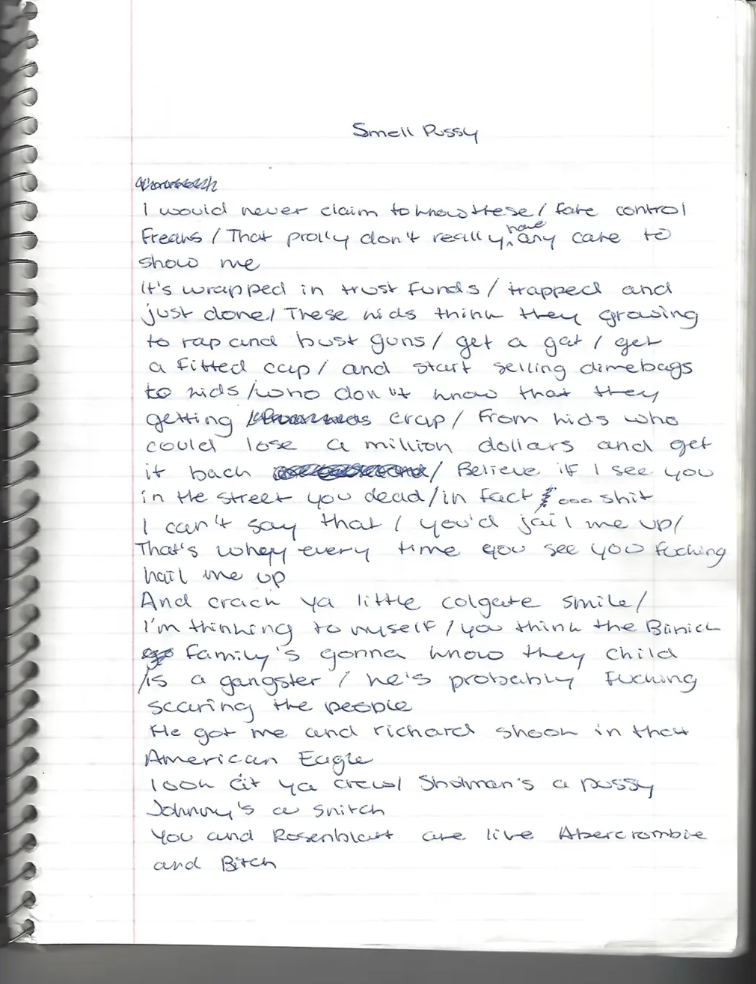 Smell Pussy
I would never claim to know these / fake control
Freaks / That prolly don't really have any care to
show me
It's wrapped in trust funds / trapped and
just done / These kids think they growing
to rap and bust guns / get a gat / get
a fitted cap / and start selling dimebags
to kids / who don't know that they
getting crap / From kids who
could lose a million dollars and get
it back / Believe if I see you
in the street you dead / in fact ooo shit
I can't say that / you'd jail me up /
That's when every time you see you fucking
hail me up
And crack ya little colgate smile /
I'm thinking to myself / you think the Bunick
family's gonna know they child
/ is a gangster / he's probably fucking
scaring the people
He got me and richard shook in that
American Eagle
look at ya crew / Sholman's a pussy
Johnny's a snitch
You and Rosenblatt are live Abercrombie
and Bitch